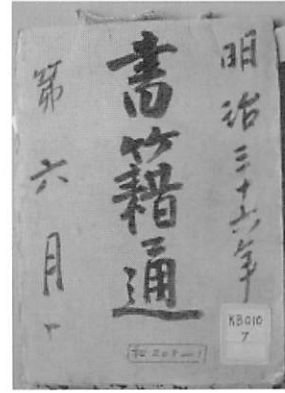 明治三十六年
書籍通
第六月
KB010
7